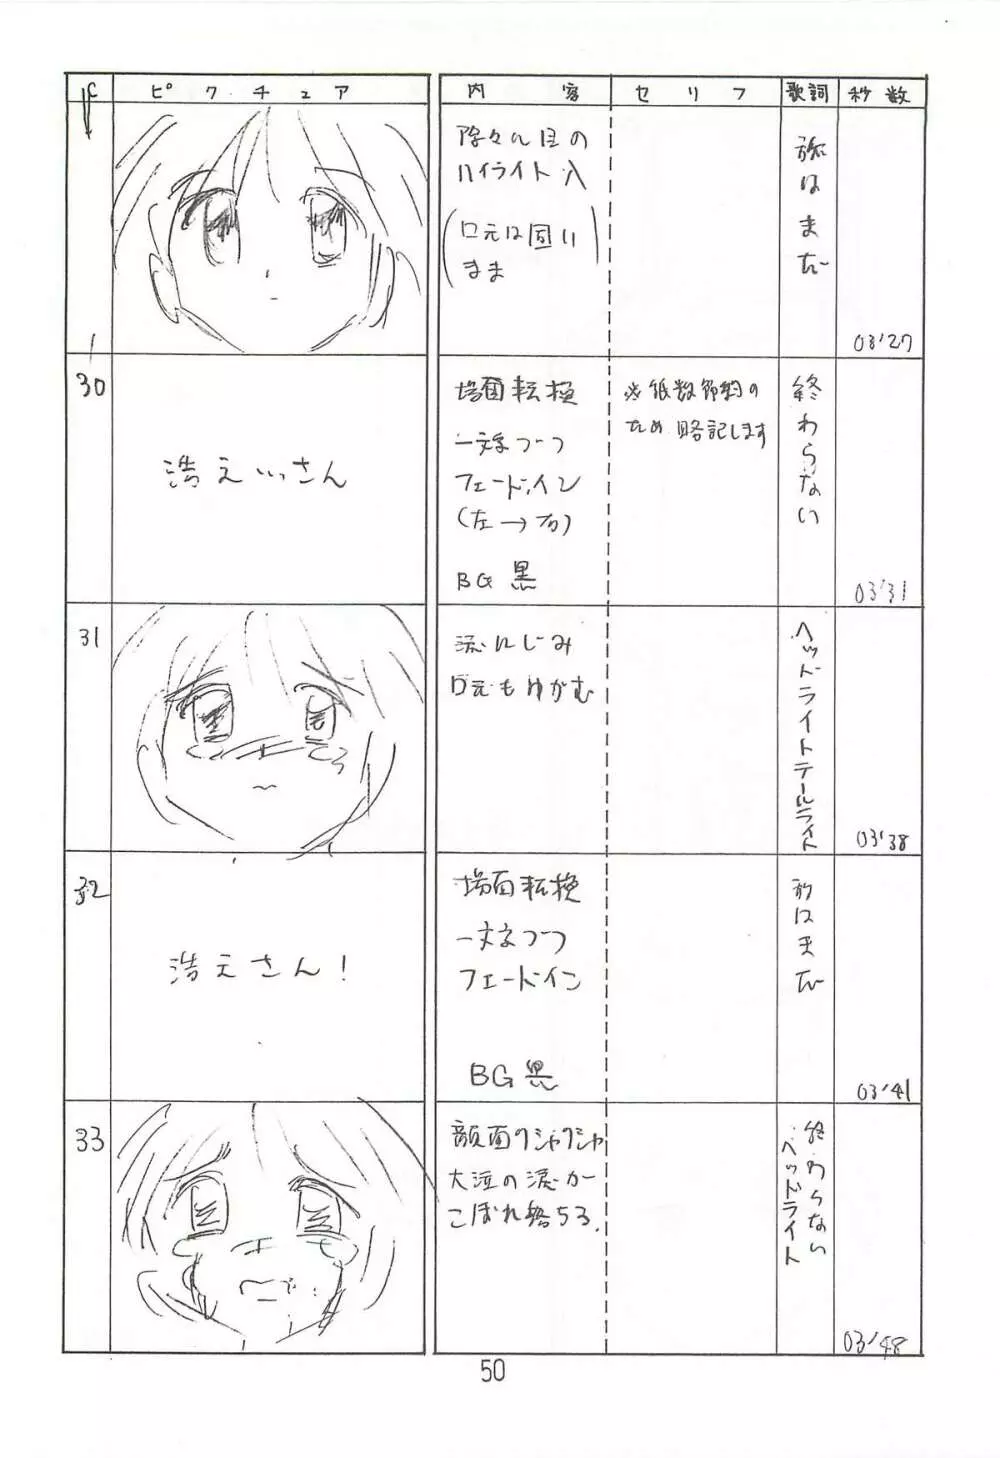 C
ピクチュア
内容
セリフ
歌詞
秒数
段々に目の
ハイライト入
(口元は固い
まま)
旅はまだ
03'27
30
浩えいっさん
場面転換
一文字づつ
フェードイン
(左→右)
BG 黒
※紙数節約の
ため略記します
終わらない
03'31
31
涙にじみ
口元もゆがむ
ヘッドライトテールライト
03'38
32
浩えさん!
場面転換
一文字づつ
フェードイン
BG 黒
旅はまだ
03'41
33
顔面クシャクシャ
大泣の涙が
こぼれ落ちる.
終わらない
ヘッドライト
03'48
50